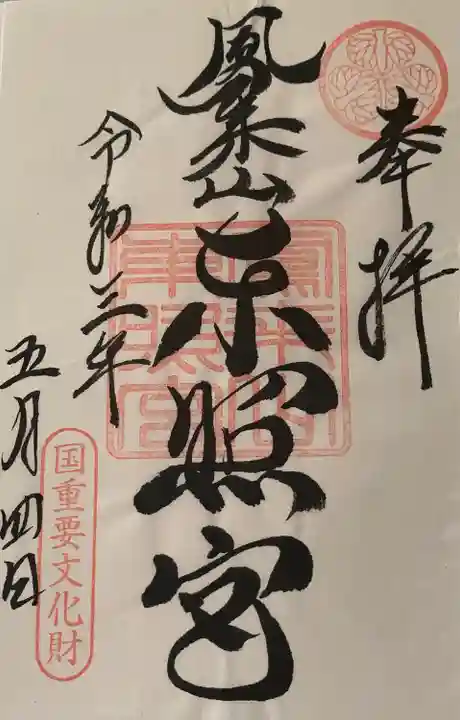 奉拝
鳳来山東照宮
鳳来山
東照宮
令和三年
五月四日
国重要文化財